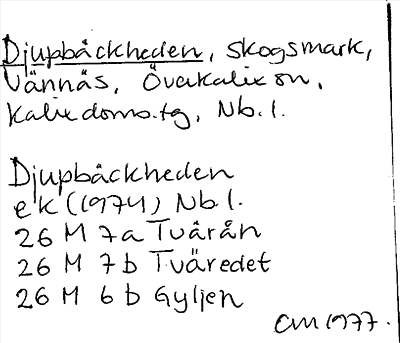 Djupbäckheden, skogsmark,
Vännäs, Överkalix sn,
Kalix doms.tg, Nb.l.
Djupbäckheden
ek (1974) Nb l.
26 M 7a Tvärån
26 M 7b Tväredet
26 M 6b Gyljen
CM 1977.